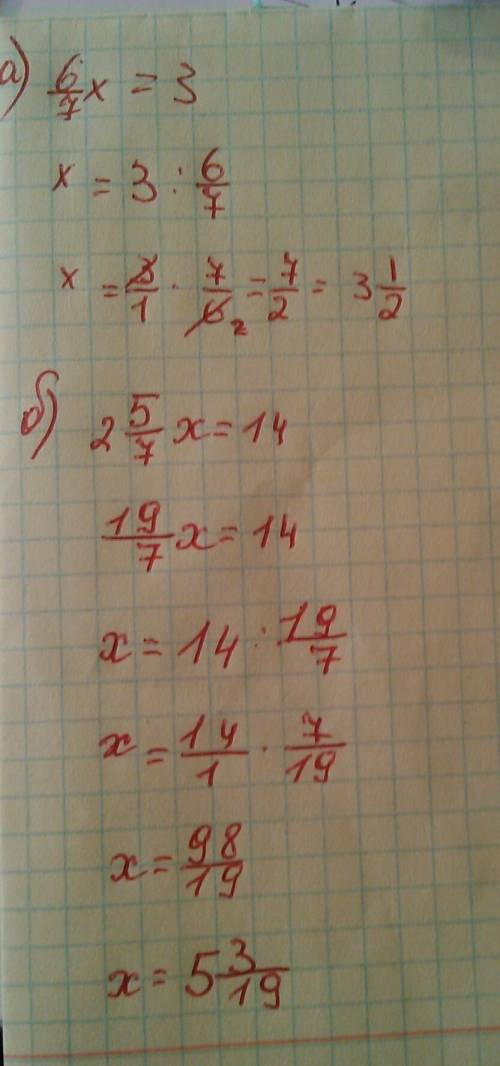 а) 6/7 x = 3
x = 3 : 6/7
x = 3/1 · 7/6 2 = 7/2 = 3 1/2
б) 2 5/7 x = 14
19/7 x = 14
x = 14 : 19/7
x = 14/1 · 7/19
x = 98/19
x = 5 3/19